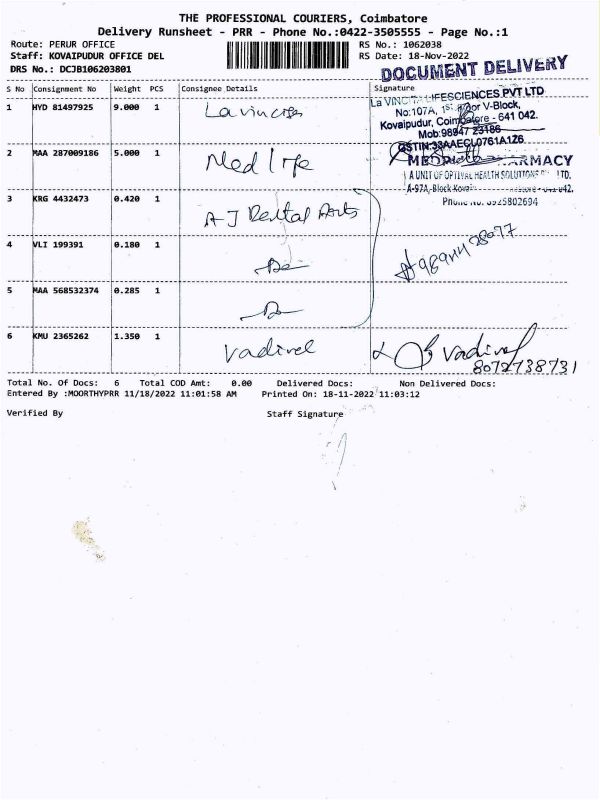 THE PROFESSIONAL COURIERS, Coimbatore
Delivery Runsheet - PRR - Phone No.:0422-3505555 - Page No.:1
Route: PERUR OFFICE RS No.: 1062038
Staff: KOVAIPUDUR OFFICE DEL RS Date: 18-Nov-2022
DRS No.: DCJB106203801
DOCUMENT DELIVERY
S No Consignment No Weight PCS Consignee Details Signature
1 HYD 81497925 9.000 1 Lavincis
LIFESCIENCES PVT LTD
No:107A, V-Block,
Kovaipudur, - 641 042.
Mob:98947 23186
GSTIN:33AAECL0761A1Z6
2 MAA 287009186 5.000 1 Medlife
A UNIT OF OPTIVAL HEALTH SOLUTIONS LTD.
A-97A, Block
3 KRG 4432473 0.420 1 A J Dental Arts
4 VLI 199391 0.180 1
5 MAA 568532374 0.285 1
6 KMU 2365262 1.350 1 Vadivel Vadivel
8072738731
Total No. Of Docs: 6 Total COD Amt: 0.00 Delivered Docs: Non Delivered Docs:
Entered By :MOORTHYPRR 11/18/2022 11:01:58 AM Printed On: 18-11-2022 11:03:12
Verified By Staff Signature